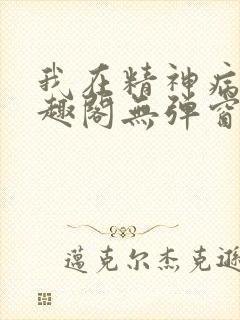 我在精神病
趣阁無弹窗
邁克尔杰克遜